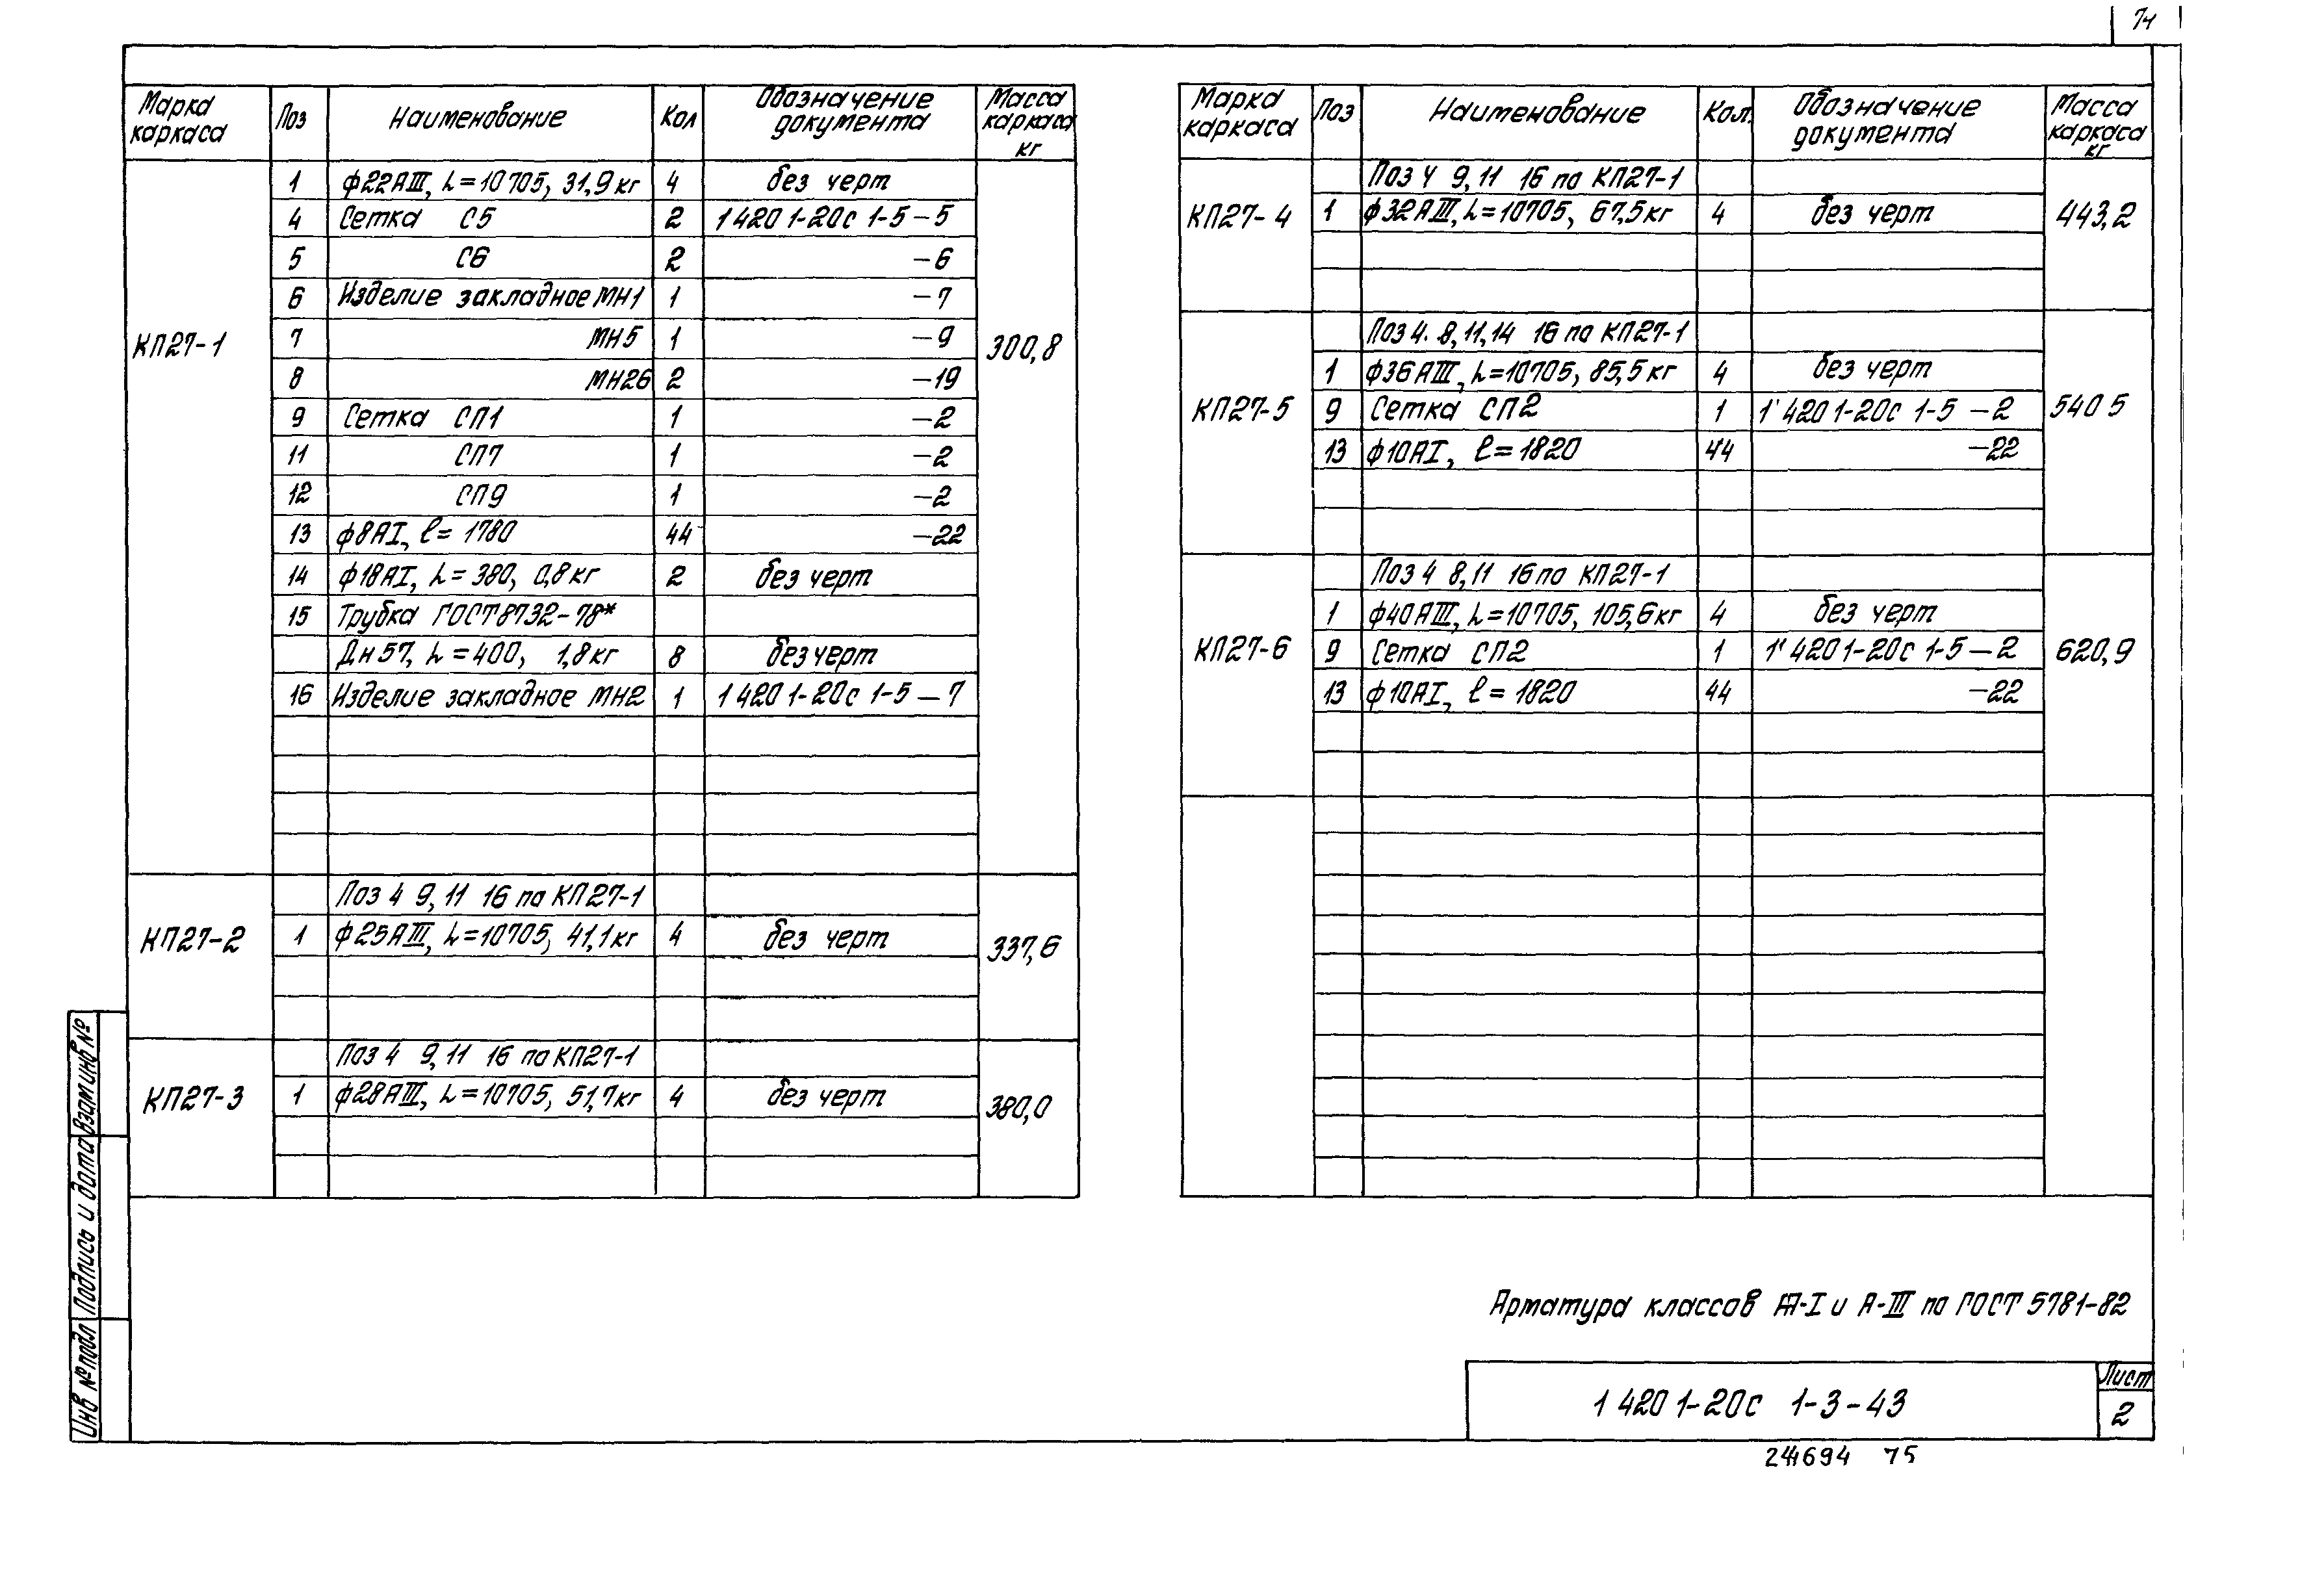 74
Марка каркаса Поз Наименование Кол Обозначение документа Масса каркаса, кг
КП27-1 300,8
1 ф22АIII, L=10705, 31,9кг 4 без черт
4 Сетка С5 2 1 420 1-20с 1-5-5
5 С6 2 -6
6 Изделие закладное МН1 1 -7
7 МН5 1 -9
8 МН26 2 -19
9 Сетка СП1 1 -2
11 СП7 1 -2
12 СП9 1 -2
13 ф8АI, ℓ= 1780 44 -22
14 ф18АI, L= 380, 0,8кг 2 без черт
15 Трубка ГОСТ8732-78*
Дн57, L=400, 1,8кг 8 без черт
16 Изделие закладное МН2 1 1 420 1-20с 1-5-7
КП27-2 337,6
Поз 4 9, 11 16 по КП27-1
1 ф25АIII, L=10705, 41,1кг 4 без черт
КП27-3 380,0
Поз 4 9, 11 16 по КП27-1
1 ф28АIII, L=10705, 51,7кг 4 без черт
Марка каркаса Поз Наименование Кол. Обозначение документа Масса каркаса кг
КП27-4 443,2
Поз 4 9, 11 16 по КП27-1
1 ф32АIII, L=10705, 67,5кг 4 без черт
КП27-5 540 5
Поз 4. 8, 11, 14 16 по КП27-1
1 ф36АIII, L=10705, 85,5кг 4 без черт
9 Сетка СП2 1 1 420 1-20с 1-5-2
13 ф10АI, ℓ=1820 44 -22
КП27-6 620,9
Поз 4 8, 11 16 по КП27-1
1 ф40АIII, L=10705, 105,6кг 4 без черт
9 Сетка СП2 1 1 420 1-20с 1-5-2
13 ф10АI, ℓ=1820 44 -22
Арматура классов А-I и А-III по ГОСТ 5781-82
1 420 1-20с 1-3-43
Лист
2
24694 75
Инв № подл
Подпись и дата
Взам инв №